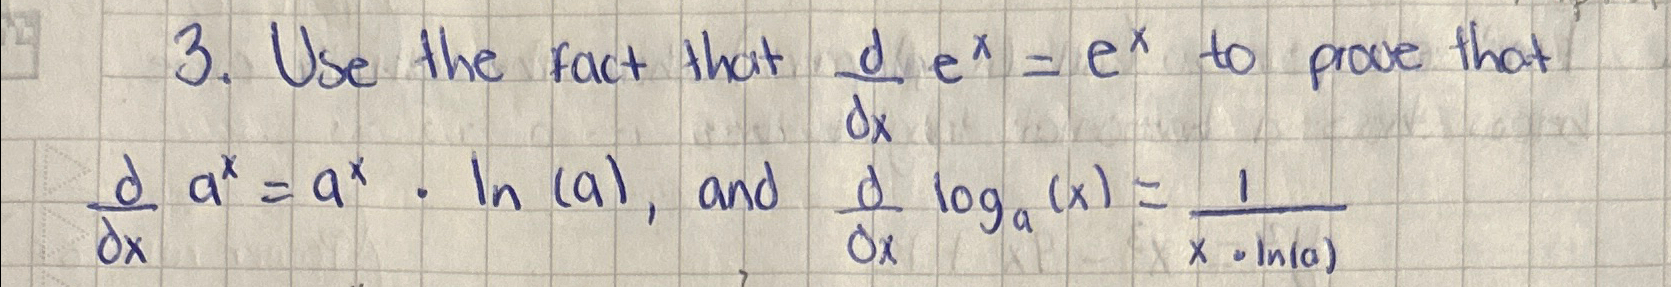 3. Use the fact that d/dx e^x = e^x to prove that
d/dx a^x = a^x · ln(a), and d/dx log_a(x) = 1/(x · ln(a))